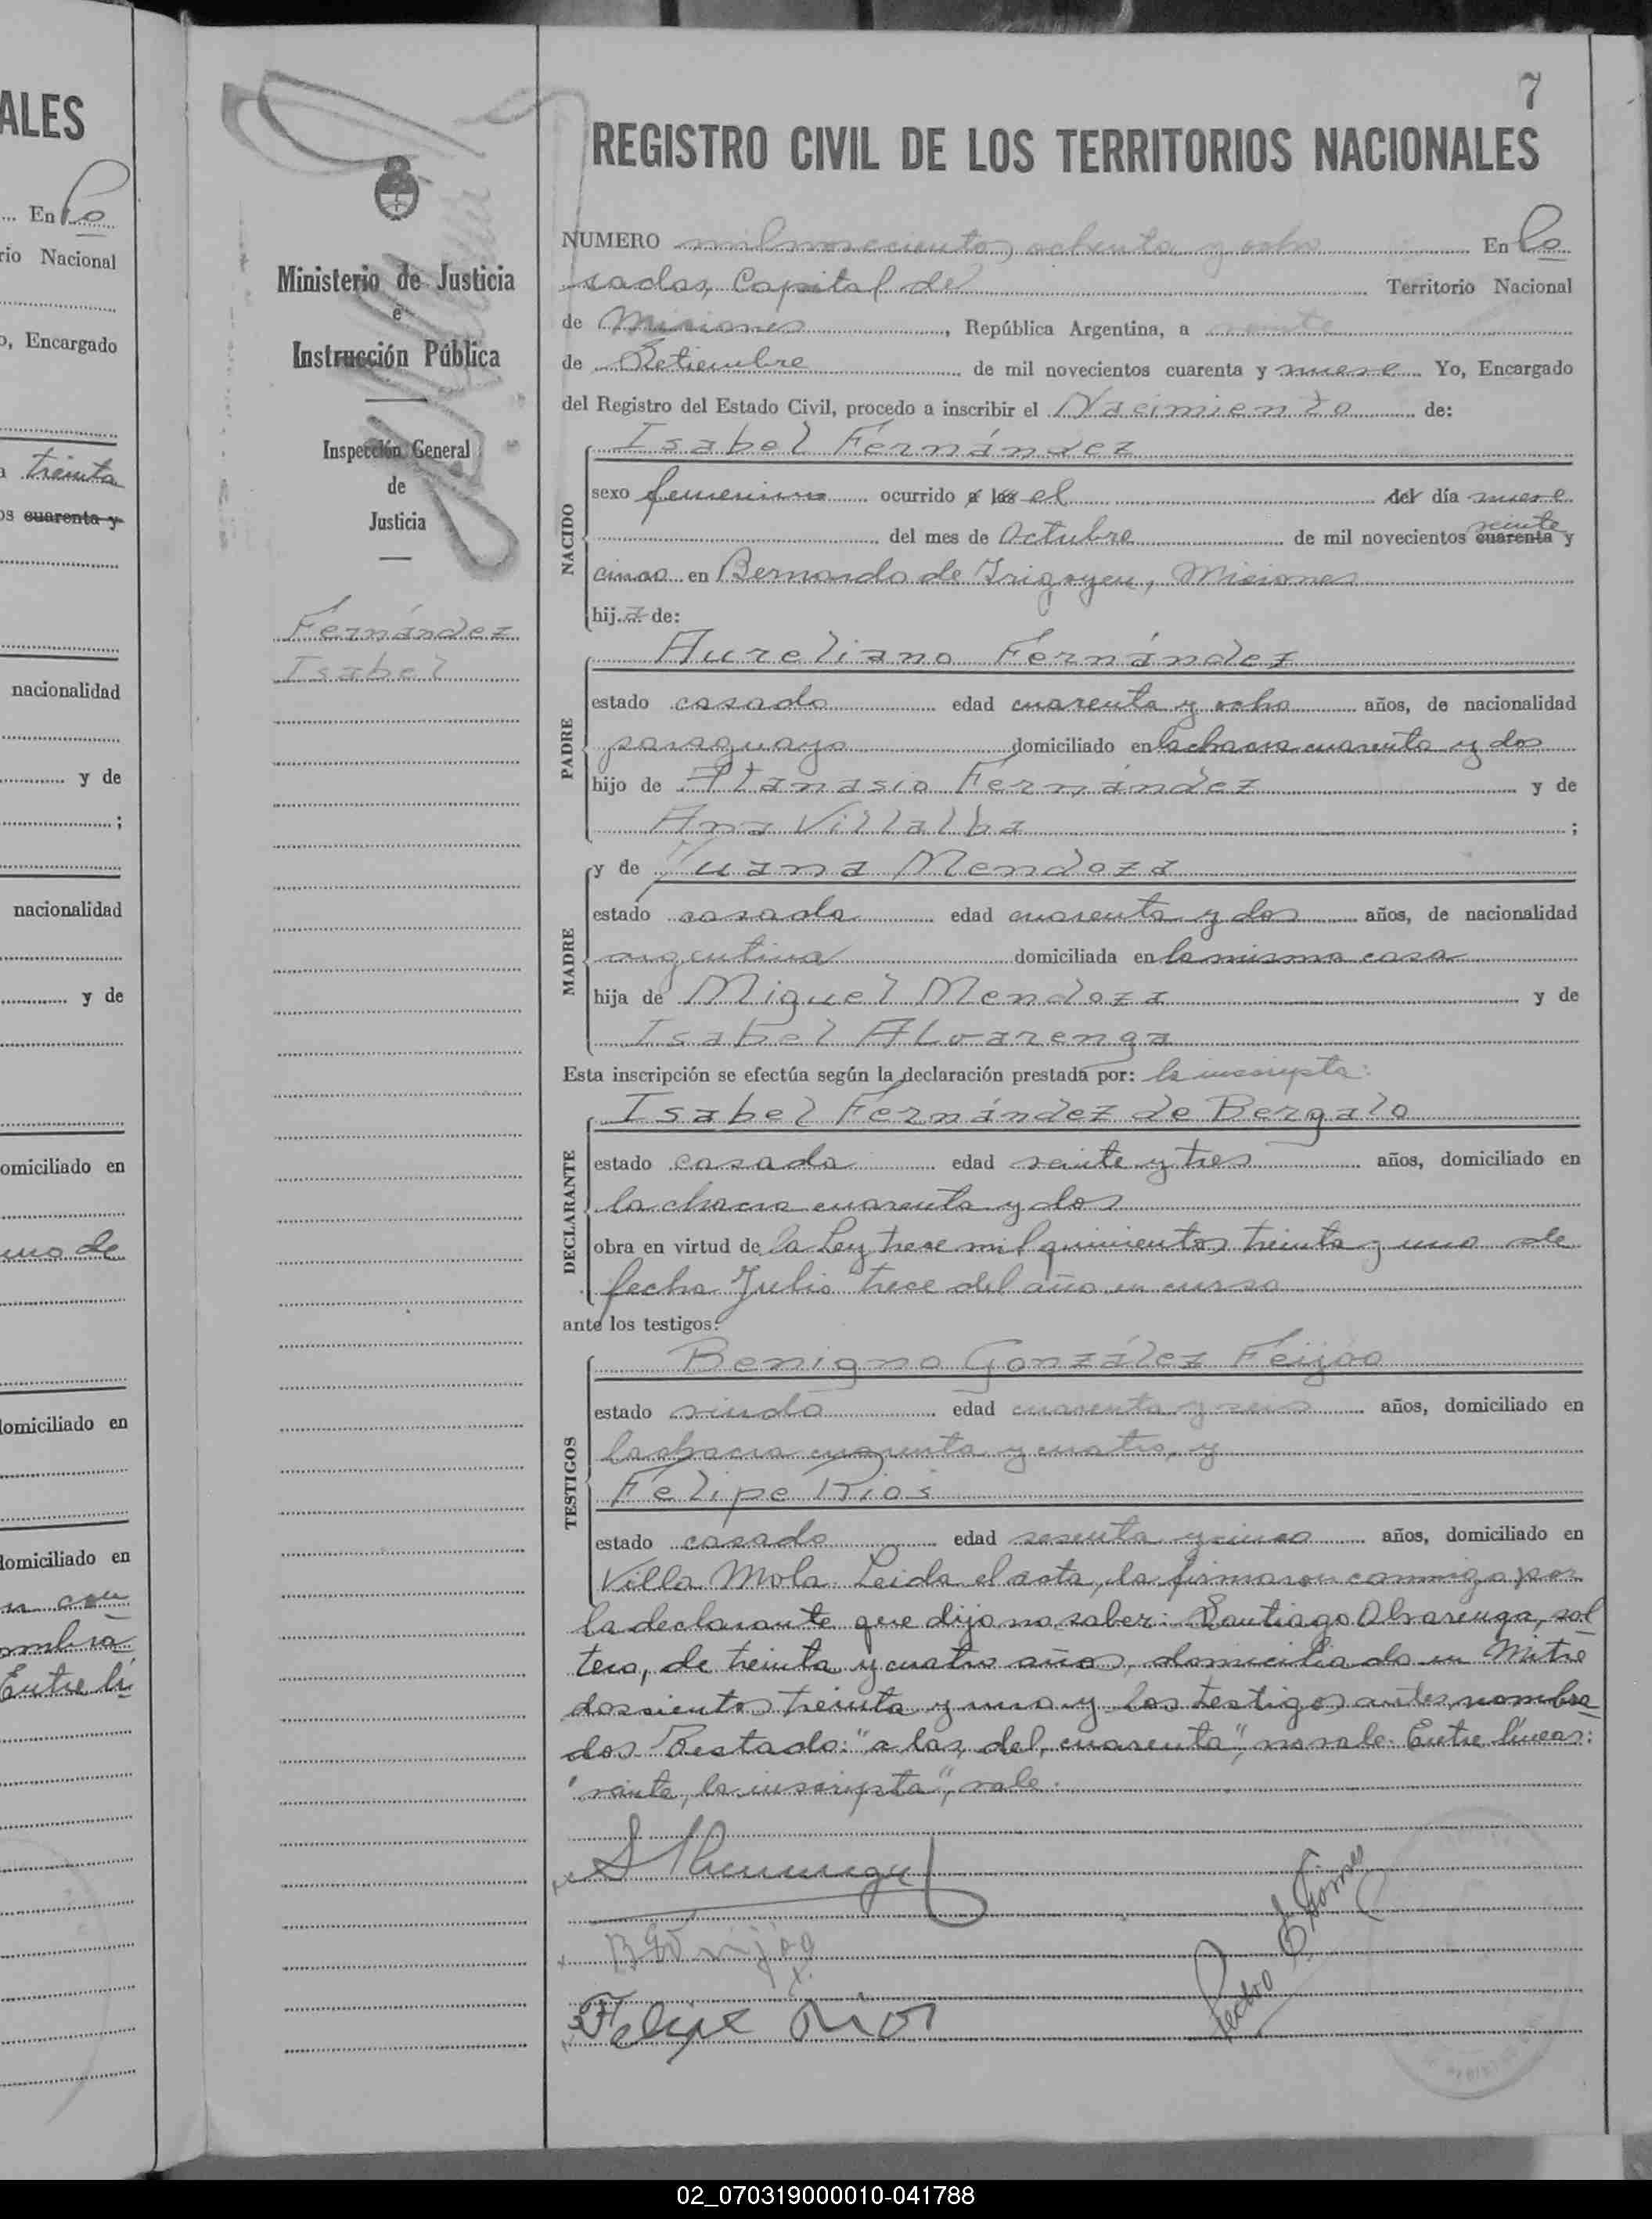 ALES
... En Po
rio Nacional
o, Encargado
a treinta
os cuarenta y
nacionalidad
y de
;
nacionalidad
y de
omiciliado en
uno de
domiciliado en
domiciliado en
n con
ombra
Entre lí
Ministerio de Justicia
e
Instrucción Pública
Inspección General
de
Justicia
Fernández
Isabel
7
REGISTRO CIVIL DE LOS TERRITORIOS NACIONALES
NUMERO mil novecientos ochenta y ocho En Po
sadas, Capital del Territorio Nacional
de Misiones, República Argentina, a veinte
de Setiembre de mil novecientos cuarenta y nueve Yo, Encargado
del Registro del Estado Civil, procedo a inscribir el Nacimiento de:
NACIDO
Isabel Fernández
sexo femenino ocurrido a las el del día nueve
del mes de Octubre de mil novecientos cuarenta veinte y
cinco en Bernardo de Irigoyen, Misiones
hij.a de:
PADRE
Aureliano Fernández
estado casado edad cuarenta y ocho años, de nacionalidad
paraguayo domiciliado en la chacra cuarenta y dos
hijo de Atanasio Fernández y de
Ana Villalba ;
MADRE
y de Juana Mendoza
estado casada edad cuarenta y dos años, de nacionalidad
argentina domiciliada en la misma casa
hija de Miguel Mendoza y de
Isabel Alvarenga
Esta inscripción se efectúa según la declaración prestada por: la inscripta:
DECLARANTE
Isabel Fernández de Bergalo
estado casada edad veinte y tres años, domiciliado en
la chacra cuarenta y dos
obra en virtud de la Ley trece mil quinientos treinta y uno de
fecha Julio trece del año en curso
ante los testigos:
TESTIGOS
Benigno González Feijóo
estado viudo edad cuarenta y seis años, domiciliado en
la chacra cuarenta y cuatro, y
Felipe Rios
estado casado edad sesenta y cinco años, domiciliado en
Villa Mola. Leida el acta, la firmaron conmigo por
la declarante que dijo no saber: Santiago Alvarenga, sol
tero, de treinta y cuatro años, domiciliado en Mitre
doscientos treinta y uno y los testigos antes nombra
dos Testado: "a las, del, cuarenta", no vale. Entre líneas:
"veinte, la inscripta", vale.
Felipe Rios
Pedro Gomes
02_070319000010-041788